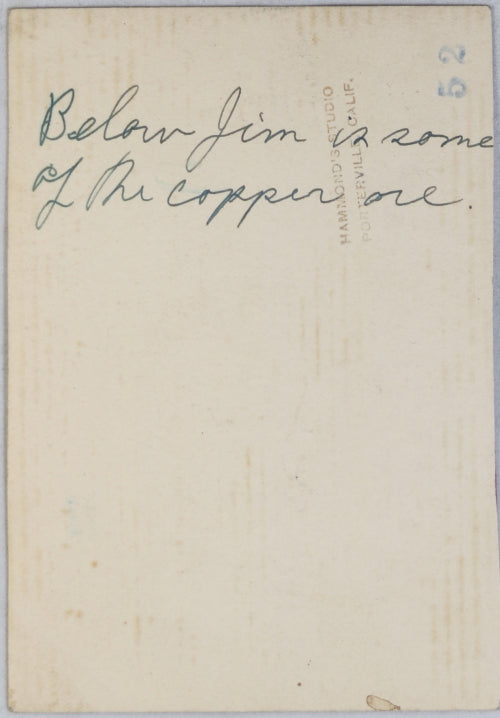 Below Jim is some
of the copper ore.
HAMMOND'S STUDIO
PORTERVILLE, CALIF.
52